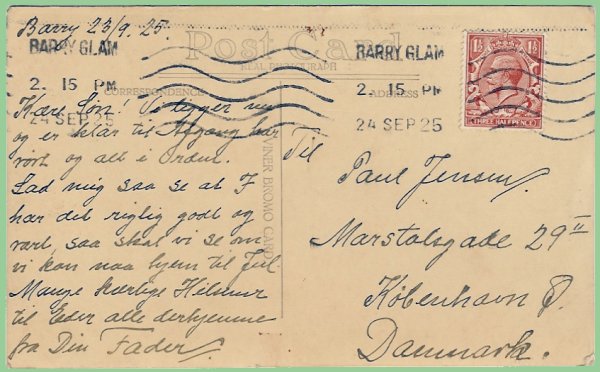 Barry 23/9. 25.
BARRY GLAM
2. 15 PM
24 SEP 25
Post Card
REAL PHOTOGRAPH
CORRESPONDENCE
ADDRESS
BARRY GLAM
2. 15 PM
24 SEP 25
1½ 1½
THREE HALF PENCE
Kære Søn! Vi ligger nu
og er klar til Afgang har
og alt i Orden.
Lad mig saa se at I
har det rigtig godt og
rart, saa skal vi se om
vi kan naa hjem til Jul
Mange kærlige Hilsner
til Eder alle derhjemme
fra Din Fader.
BROMO CARD
Til
Paul Jensen.
Marstalsgade 29 II
København Ø.
Danmark.